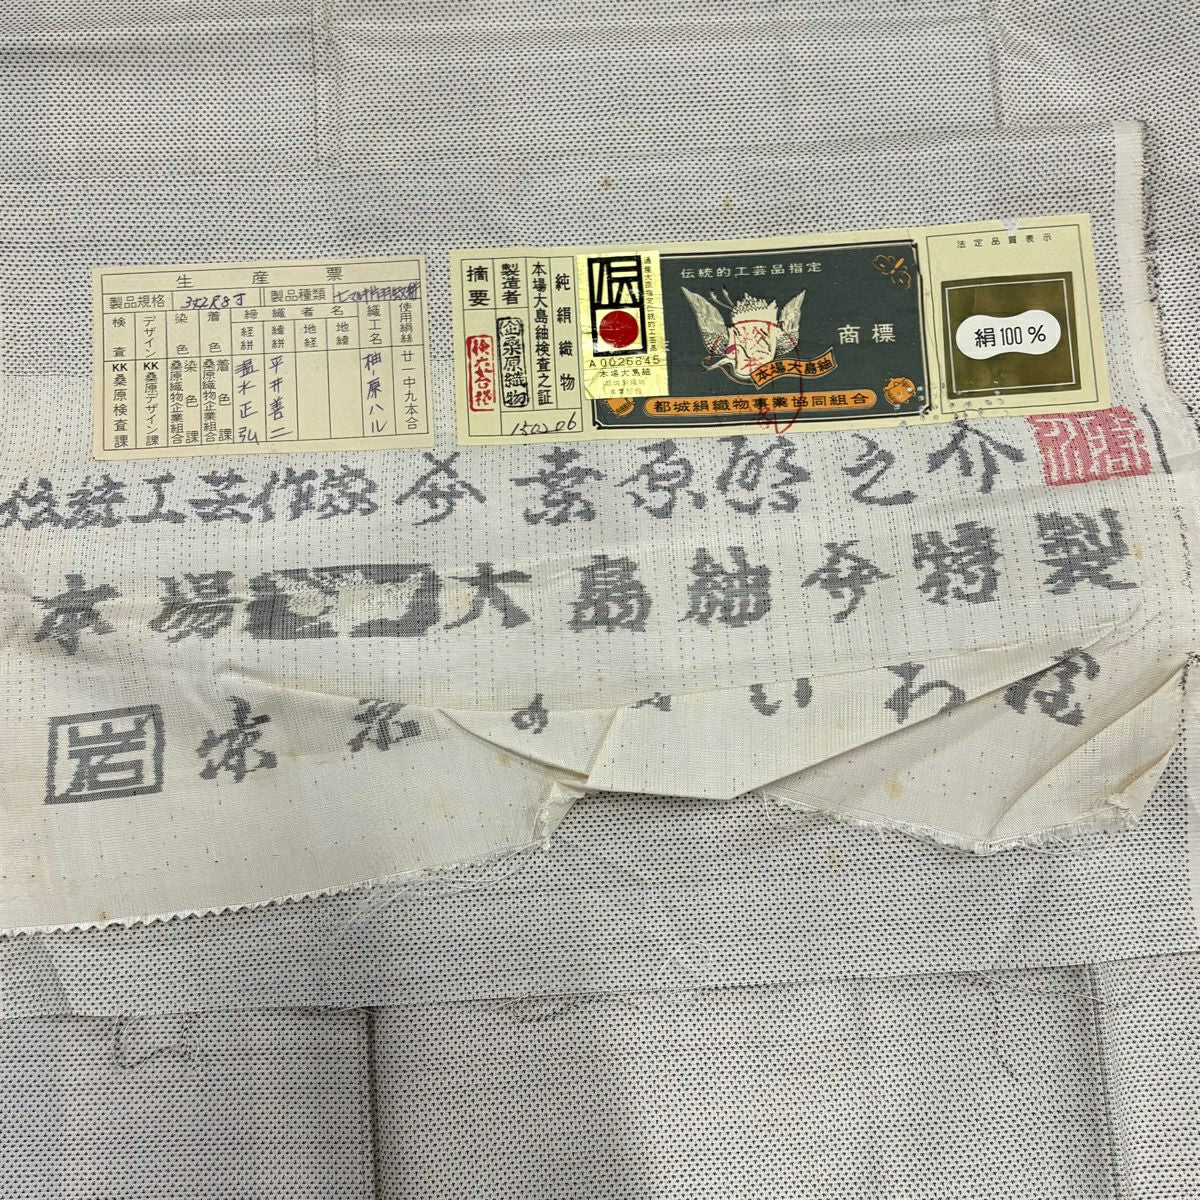 生産票
製品規格 3丈2尺8寸 製品種類
検査 KK桑原検査課
デザイン KK桑原デザイン課
染色 桑原織物企業組合染色課
着色 桑原織物企業組合着色課
締 経絣 緯絣 正弘
織 平井善二
者 地経
名 地緯
織工名 榊原ハル
使用絹絲 廿一中九本合
摘要 検査合格
製造者 企桑原織物
本場大島紬検査之証 150206
純絹織物
伝
通産大臣指定伝統的工芸品
A0026845
本場大島紬
伝統的工芸品指定
商標
本場大島紬
都城絹織物事業協同組合
法定品質表示
絹100%
伝統工芸作家 桑原 之介
本場 大島紬 特製
岩